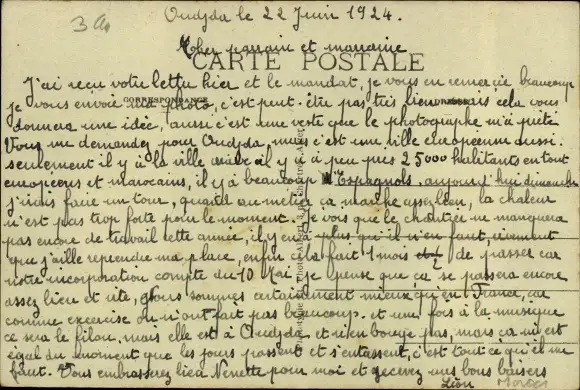 3 a
Oudjda le 22 Juin 1924.
Cher parrain et marraine
CARTE POSTALE
J'ai reçu votre lettre hier et le mandat, je vous en remercie beaucoup
CORRESPONDANCE
je vous envoie une photo, c'est peut-être pas très bien mais cela vous
donnera une idée, aussi c'est une veste que le photographe m'a prêté
Vous me demandez pour Oudjda, mais c'est une ville européenne aussi.
seulement il y à la ville arabe il y à à peu près 25000 habitants en tout
européens et marocains, il y à beaucoup d'Espagnols. aujourd'hui dimanche
j'irais faire un tour, quand au métier ça marche assez bien, la chaleur
n'est pas trop forte pour le moment. Je vois que le chantier ne manquera
pas encore de travail cette année, il y en à plus qu'il n'en faut, vivement
que j'aille reprendre ma place, enfin cela fait 1 mois et ½ de passer car
notre incorporation compte du 10 Mai je pense que ça se passera encore
assez bien et vite, Nous sommes certainement mieux qu'en France, car
comme exercise on n'en fait pas beaucoup. et une fois à la musique
ce sera le filon, mais elle est à Oudjda et n'en bouge pas, mais ça m'est
égal du moment que les jours passent et s'entassent, c'est tout ce qu'il me
faut. Vous embrasserez bien Nenette pour moi et recevez mes bons baisers
Léon
Maroc